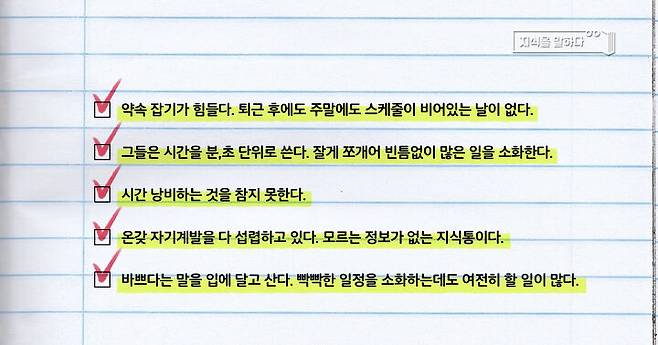 지식을 말하다
약속 잡기가 힘들다. 퇴근 후에도 주말에도 스케줄이 비어있는 날이 없다.
그들은 시간을 분,초 단위로 쓴다. 잘게 쪼개어 빈틈없이 많은 일을 소화한다.
시간 낭비하는 것을 참지 못한다.
온갖 자기계발을 다 섭렵하고 있다. 모르는 정보가 없는 지식통이다.
바쁘다는 말을 입에 달고 산다. 빡빡한 일정을 소화하는데도 여전히 할 일이 많다.